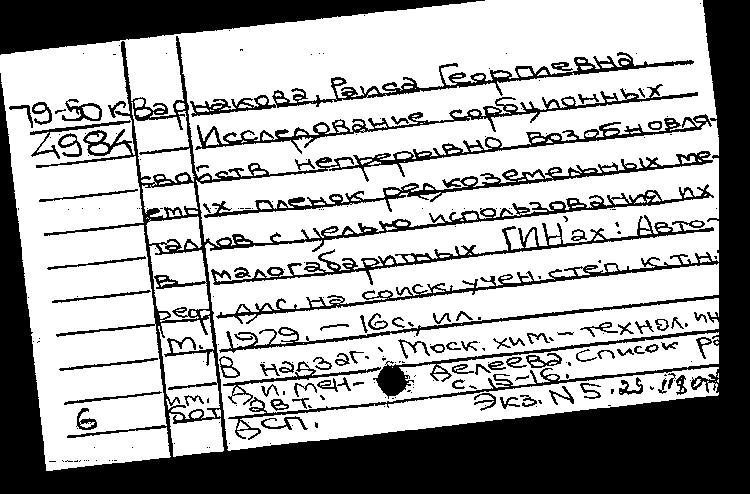 79-50к Варнакова, Раиса Георгиевна.
4984 Исследование сорбционных
свойств непрерывно возобновля-
емых пленок редкоземельных ме-
таллов с целью использования их
в малогабаритных ГИН'ах: Авто-
реф. дис. на соиск. учен. степ. к.т.н.
М., 1979. - 16с., ил.
В надзаг.: Моск. хим.-технол. ин
им. Д.И. Мен- делеева. Список ра
бот авт. с. 15-16.
6 ДСП. Экз. N 5.